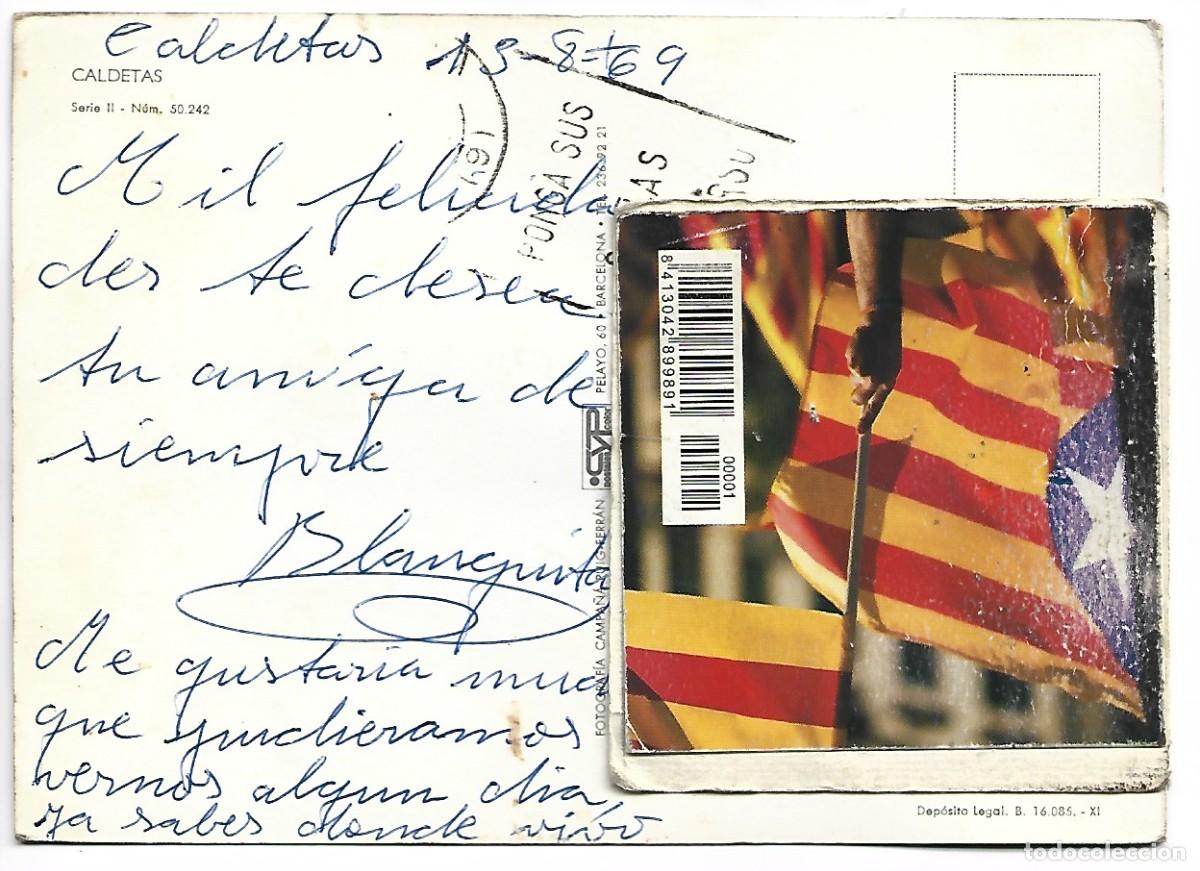 Caldetas 13-8-69
CALDETAS
Serie II - Núm. 50.242
Mil felicida
des te desea
tu amiga de
siempre
Blanquita
Me gustaria muc
que pudieramos
vernos algun dia,
ya sabes donde vivo
PONGA SUS
FOTOGRAFÍA CAMPAÑÁ PUIG-FERRÁN
CYP
color
PELAYO, 60 • BARCELONA • TEL. 236 92 21
8 413042 899891
00001
Depósito Legal. B. 16.085. - XI
todocoleccion